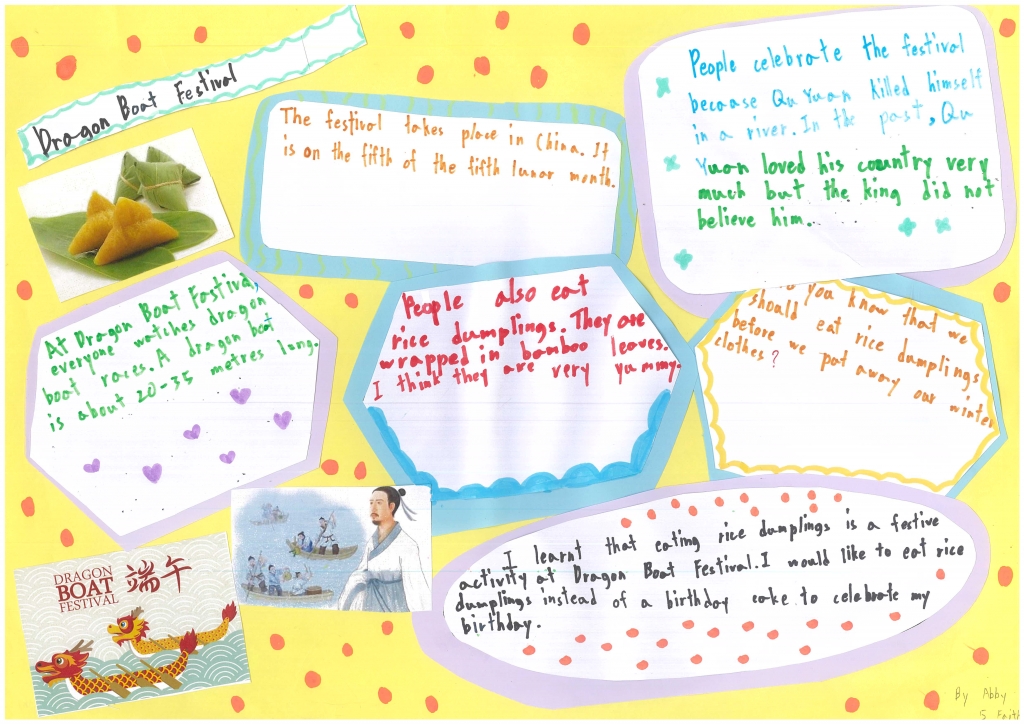 Dragon Boat Festival
The festival takes place in China. It
is on the fifth of the fifth lunar month.
People celebrate the festival
because Qu Yuan killed himself
in a river. In the past, Qu
Yuan loved his country very
much but the king did not
believe him.
At Dragon Boat Festival,
everyone watches dragon
boat races. A dragon boat
is about 20-35 metres long.
People also eat
rice dumplings. They are
wrapped in bamboo leaves.
I think they are very yummy.
you know that we
should eat rice dumplings
before we put away our winter
clothes?
DRAGON
BOAT
FESTIVAL
端午
I learnt that eating rice dumplings is a festive
activity at Dragon Boat Festival. I would like to eat rice
dumplings instead of a birthday cake to celebrate my
birthday.
By Abby
5 Faith